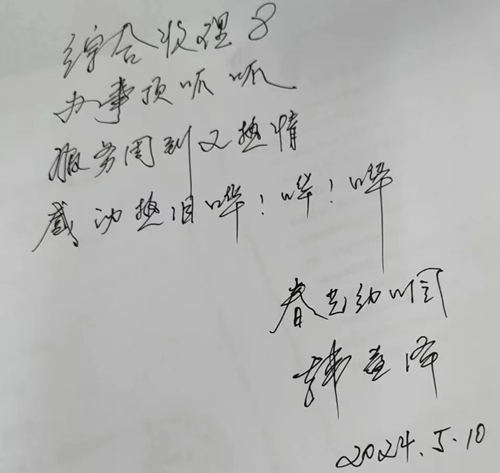 综合收理8
办事顶呱呱
服劳周到又热情
感动热泪哗!哗!哗
春芝幼川园
韩
2024.5.10